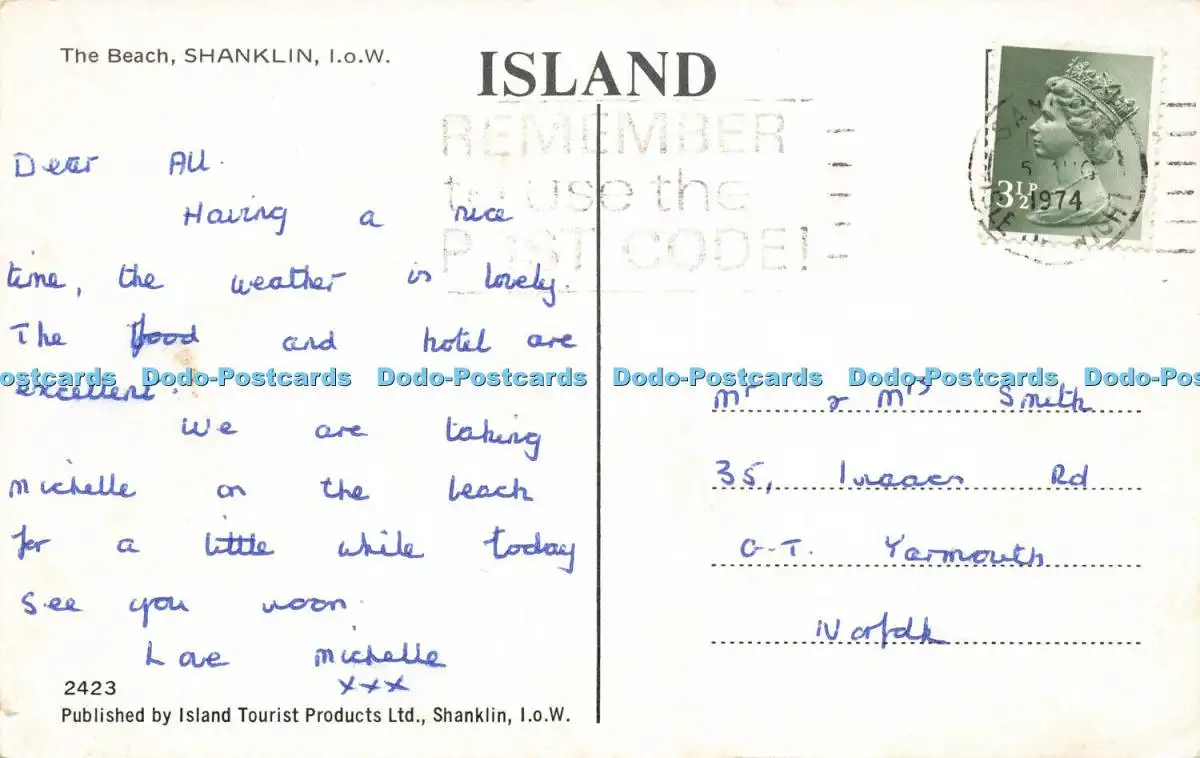 The Beach, SHANKLIN, I.o.W.
ISLAND
REMEMBER
to use the
POST CODE!
3½P
5 AUG
1974
Dear All.
Having a nice
time, the weather is lovely.
The food and hotel are
excellent.
We are taking
Michelle on the beach
for a little while today
See you soon.
Love Michelle
xxx
2423
Published by Island Tourist Products Ltd., Shanklin, I.o.W.
Mr & Mrs Smith
35, Isaacs Rd
G.T. Yarmouth
Norfolk
ostcards Dodo-Postcards Dodo-Postcards Dodo-Postcards Dodo-Postcards Dodo-Po